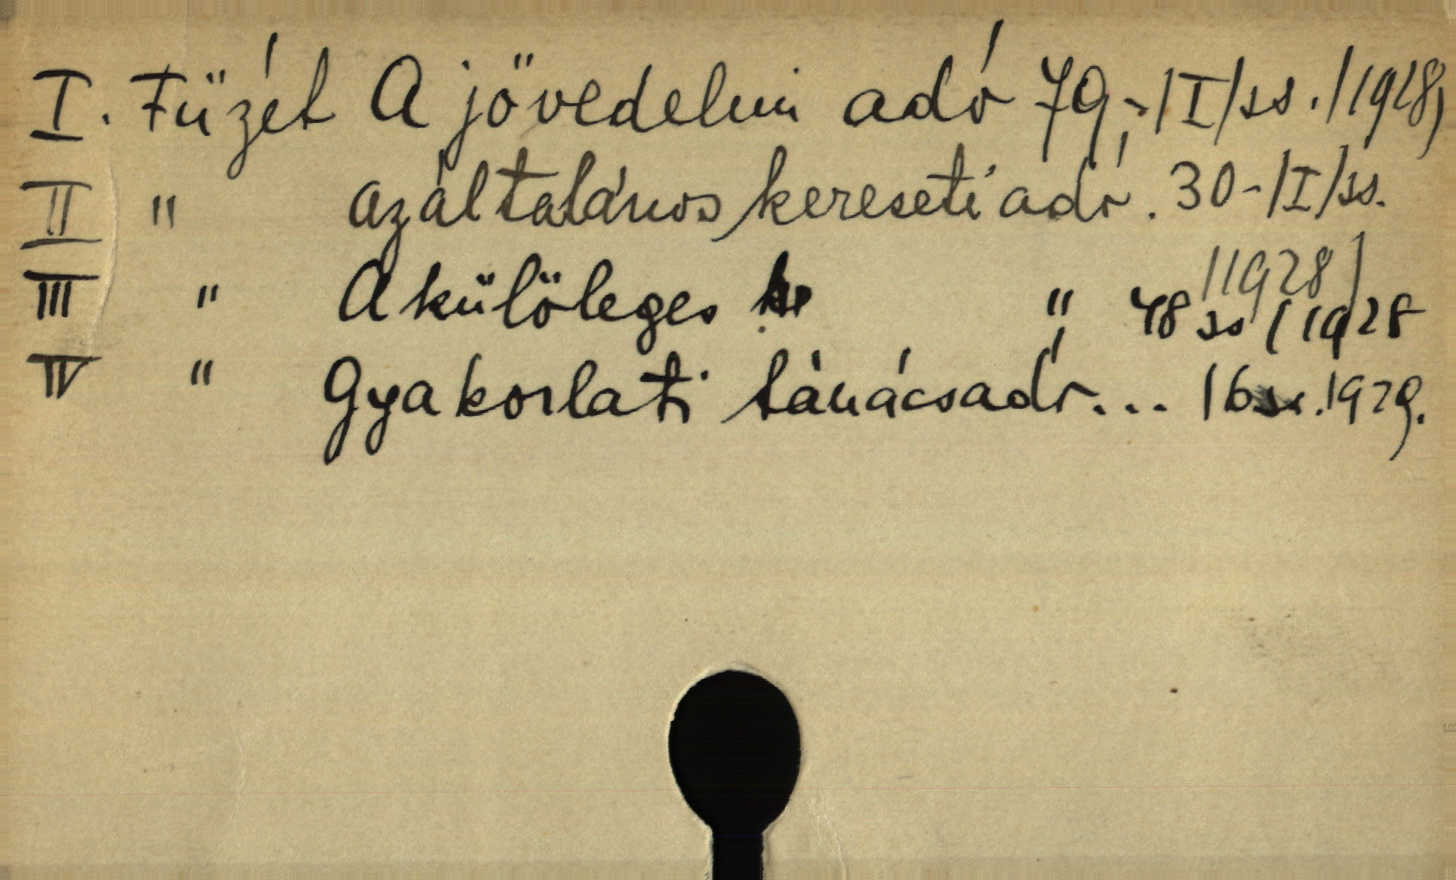 I. Füzet A jövedelmi adó 79,-/I/ss./1928/
II " az általános kereseti adó. 30-/I/ss.
/1928/
III " A külöleges " 48 ss /1928
IV " Gyakorlati tánácsadó... 16 ss. 1929.